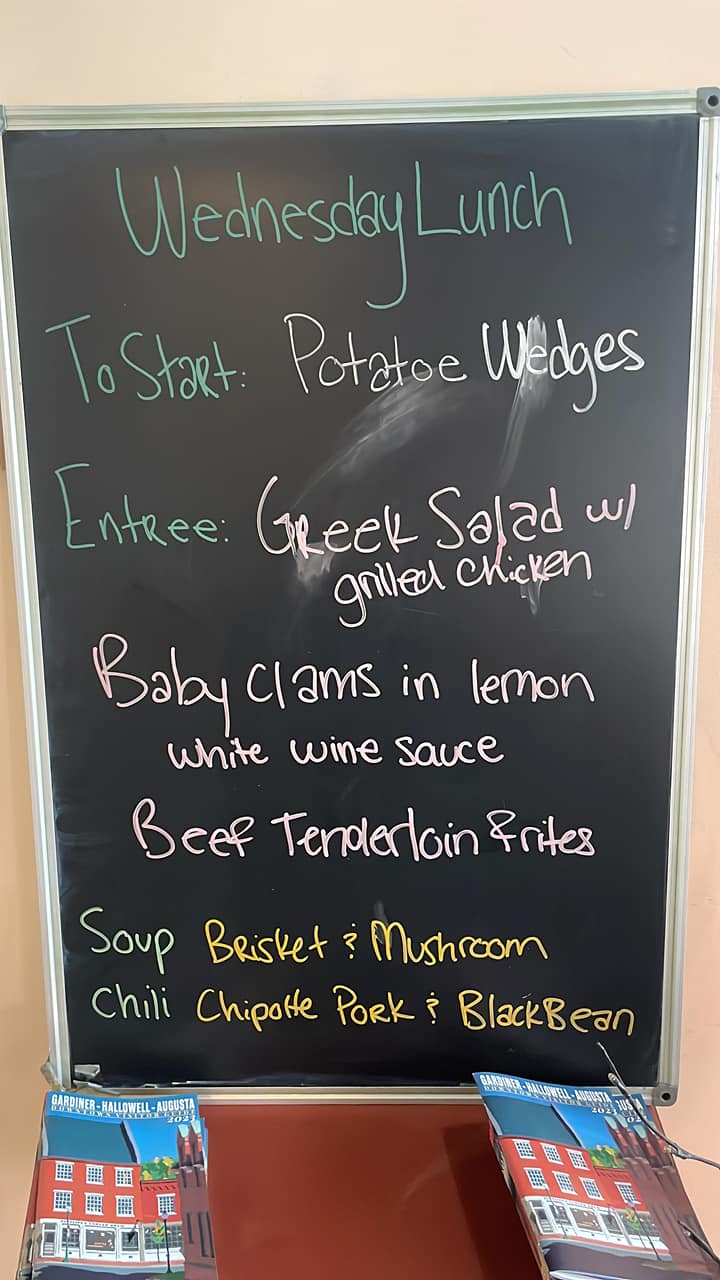 Wednesday Lunch
To Start: Potatoe Wedges
Entree: Greek Salad w/
grilled chicken
Baby clams in lemon
white wine sauce
Beef Tenderloin Frites
Soup Brisket & Mushroom
Chili Chipotle Pork & Black Bean
GARDINER - HALLOWELL - AUGUSTA
DOWNTOWN VISITOR GUIDE
2023
GARDINER - HALLOWELL - AUGUSTA
DOWNTOWN VISITOR GUIDE
2023